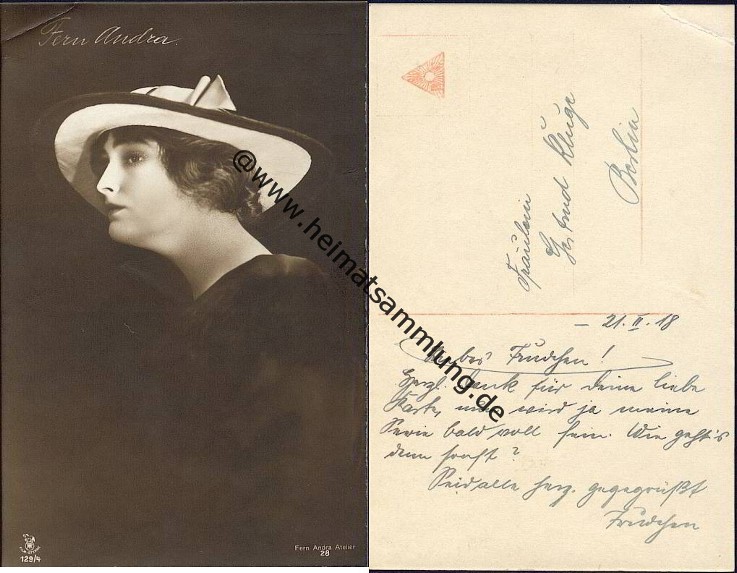 Fern Andra.
129/4
Fern Andra Atelier
28
@www.heimatsammlung.de
Fräulein
Gertrud Kluge
Berlin
– 21.II.18
Liebes Trudchen!
Herzl. Dank für deine liebe
Karte, nun wird ja meine
Serie bald voll sein. Wie geht's
denn sonst?
Seid alle herz. gegegrüßt
Trudchen